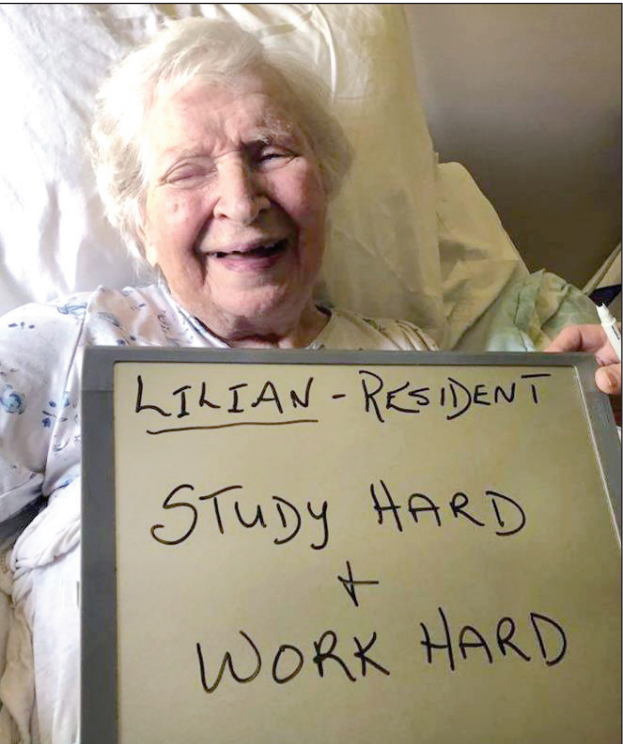 LILIAN - RESIDENT
STUDY HARD
+
WORK HARD